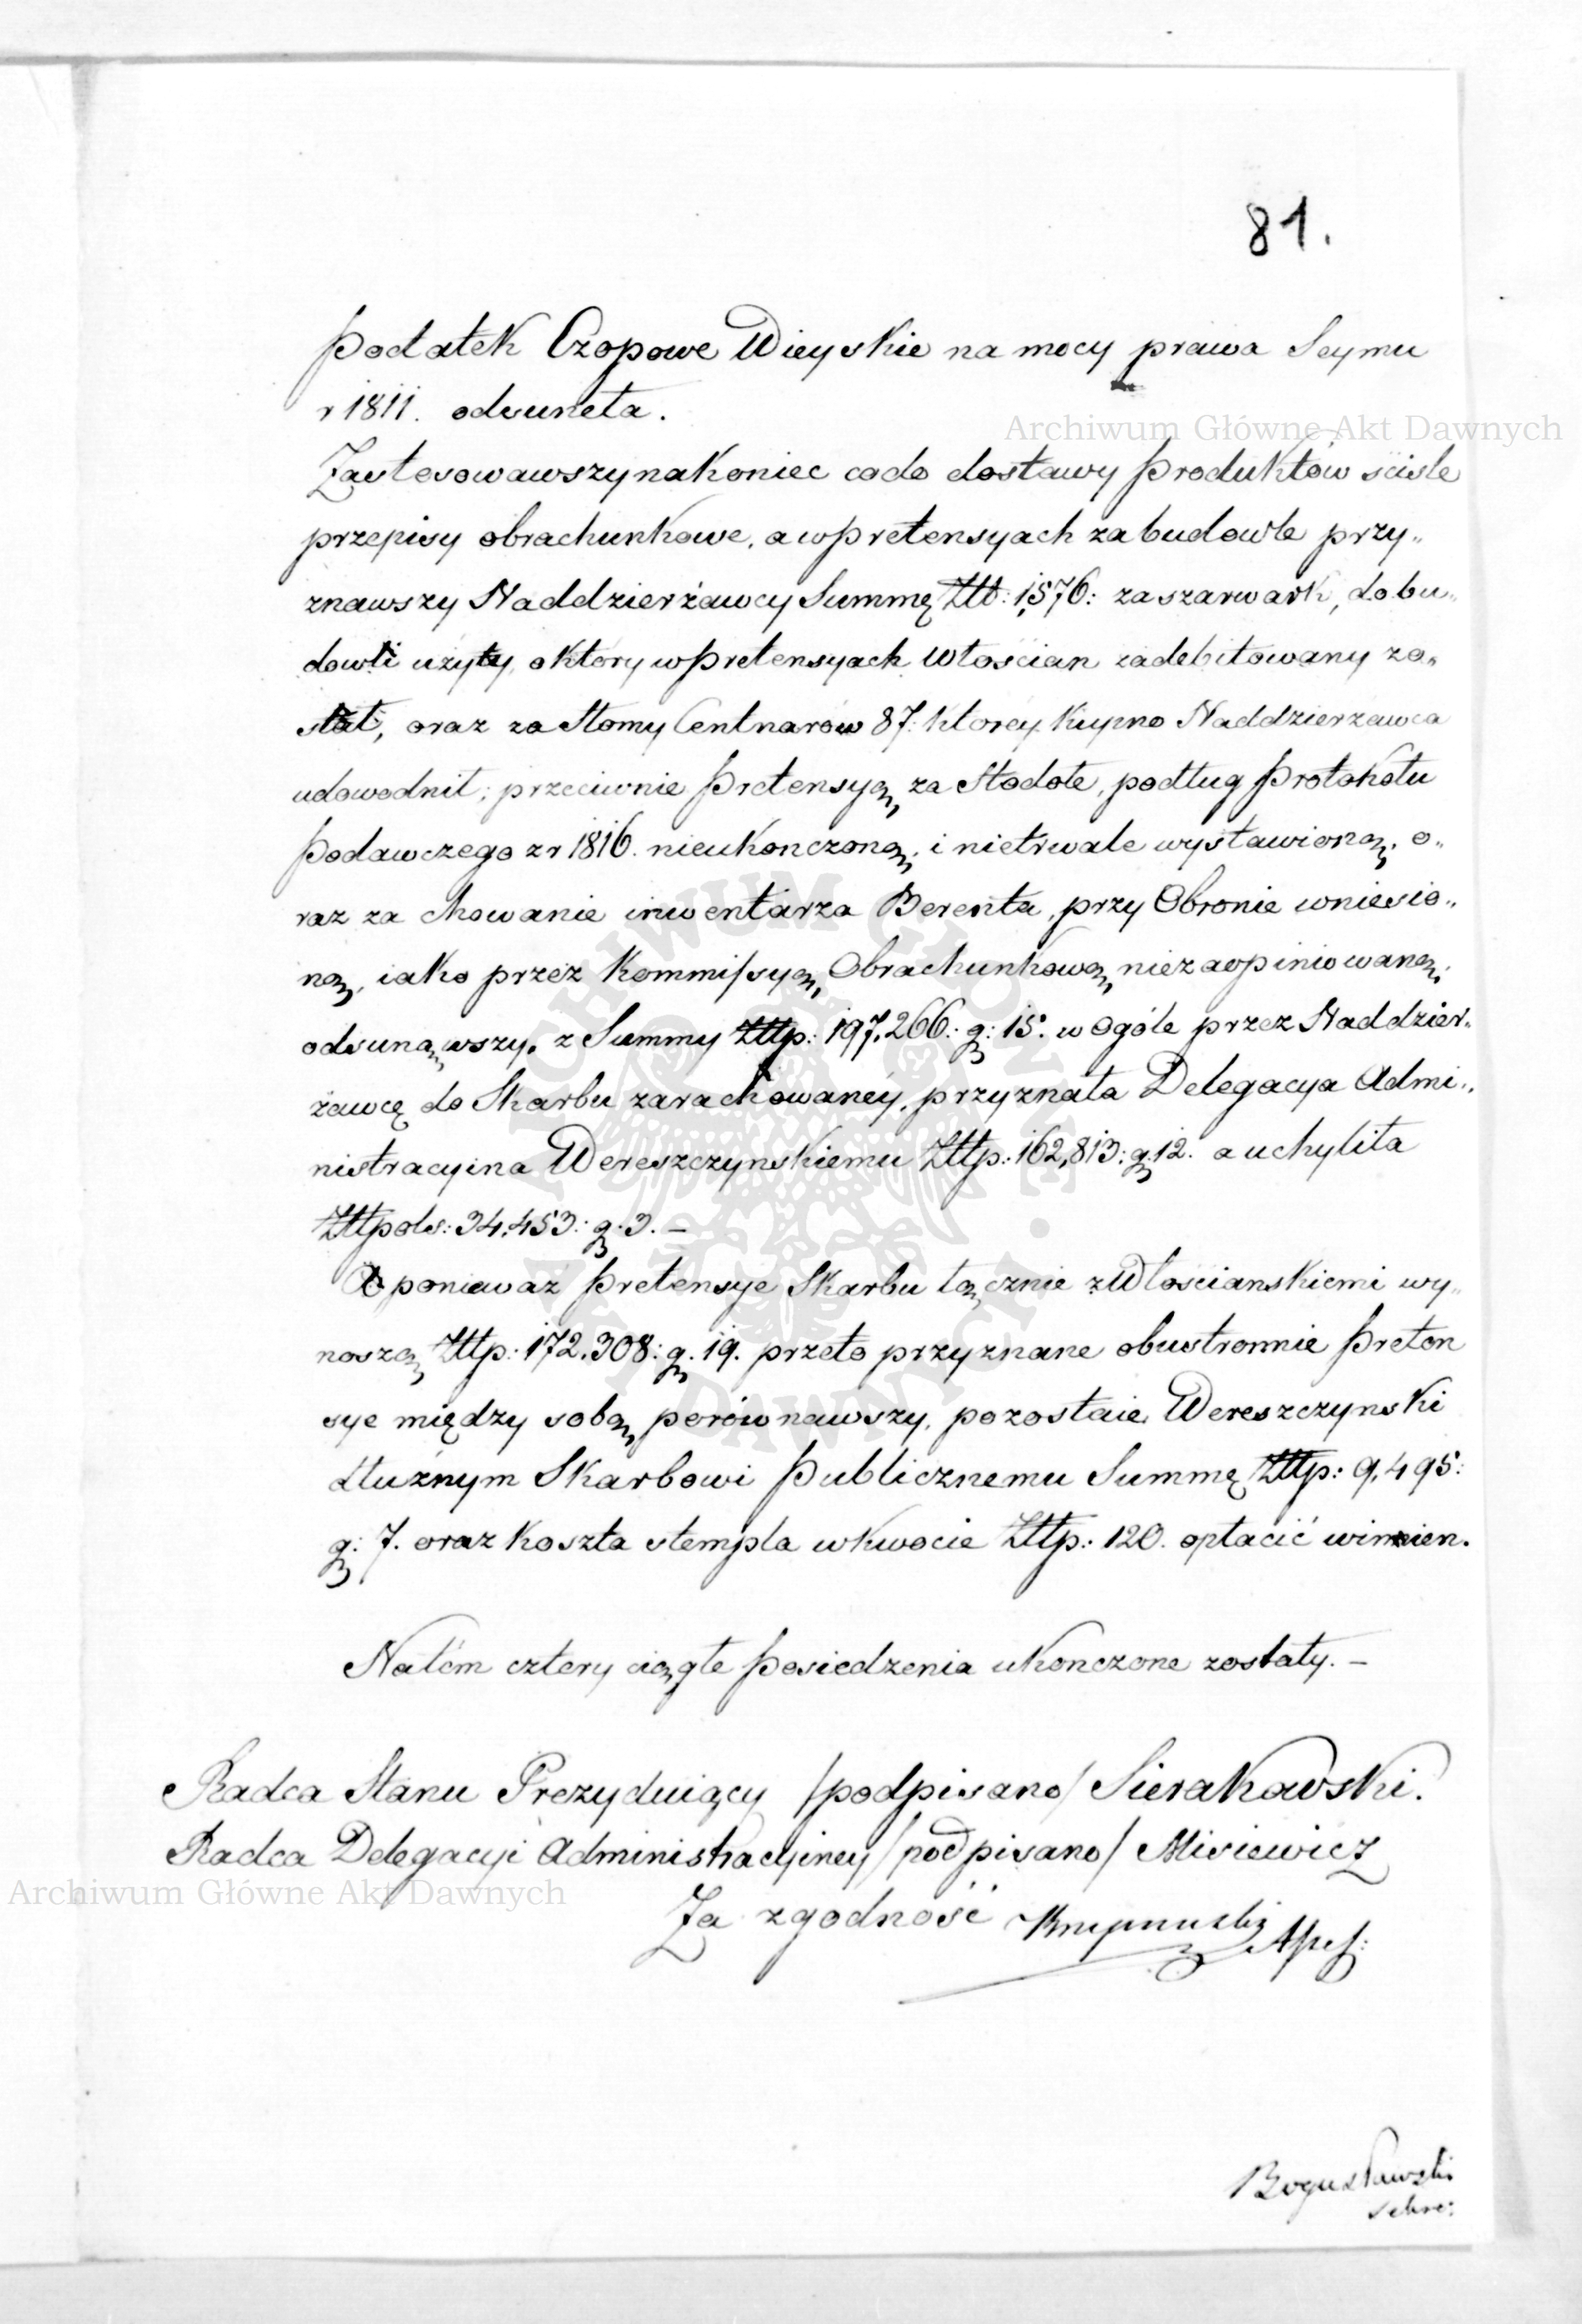 81.
Podatek Czopowe Wieyskie na mocy prawa Seymu
r 1811. odsuneła.
Zastosowawszy nakoniec codo dostawy Produktów ściśle
przepisy obrachunkowe, a w Pretensyach za budowle przy„
znawszy Naddzierżawcy Summę Złł: 1,576: za szarwark, do bu„
dowli użyty, o który w Pretensyach Włościan zadebitowany zo„
stał, oraz za Słomy Centnarów 87: ktorey kupno Naddzierzawca
udowodnił; przeciwnie Pretensyą za Stodołe, podług Protokołu
Podawczego z r 1816. nieukończoną, i nietrwale wystawioną, o„
raz za chowanie inwentarza Berenta, przy Obronie wniesio„
ną, iako przez Kommissyą Obrachunkową niezaopiniowaną,
odsunąwszy, z Summy Złłp: 197,266: g: 15. w Ogóle przez Naddzier„
żawcę do Skarbu zarachowanéy, przyznała Delegacya Admi„
nistracyina Wereszczynskiemu Złłp: 162,813: g. 12. a uchyliła
Złłpols: 34,453: g. 3. –
A ponieważ Pretensye Skarbu łącznie z Włościanskiemi wy„
noszą Złłp: 172.308: g. 19. przeto przyznane obustronnie Preten
sye między sobą porównawszy, pozostaie Wereszczynski
dłużnym Skarbowi Publicznemu Summę Złłp: 9,495:
g: 7. oraz koszta stempla w kwocie Złłp: 120. opłacić winien.
Natém cztery ciągłe Posiedzenia ukończone zostały. –
Radca Stanu Prezyduiący /podpisano/ Sierakowski.
Radca Delegacyi Administracyiney /podpisano/ Misiewicz
Za zgodność
Bogusławski
Sekre:
Archiwum Główne Akt Dawnych
Archiwum Główne Akt Dawnych
ARCHIWUM GŁÓWNE AKT DAWNYCH